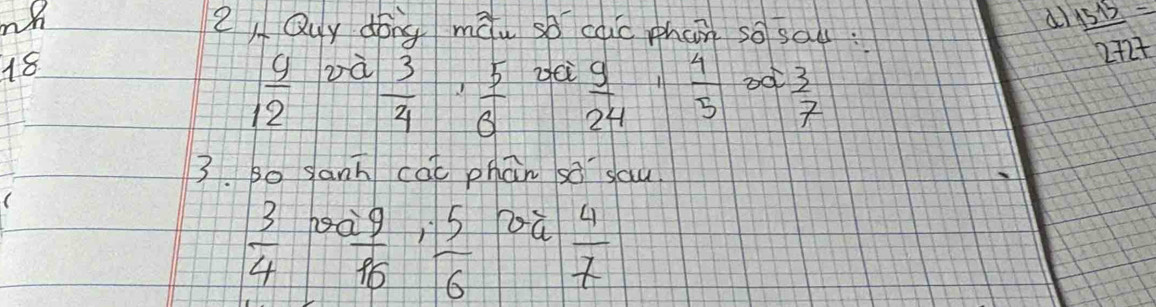 nh
18
d) 1515/2727 =
2, Quy đồng mẫu số các phân số sau:
9/12 và 3/4, 5/6 và 9/24, 4/5 và 3/7
3. so sánh các phân số sau.
3/4 và 9/16; 5/6 và 4/7